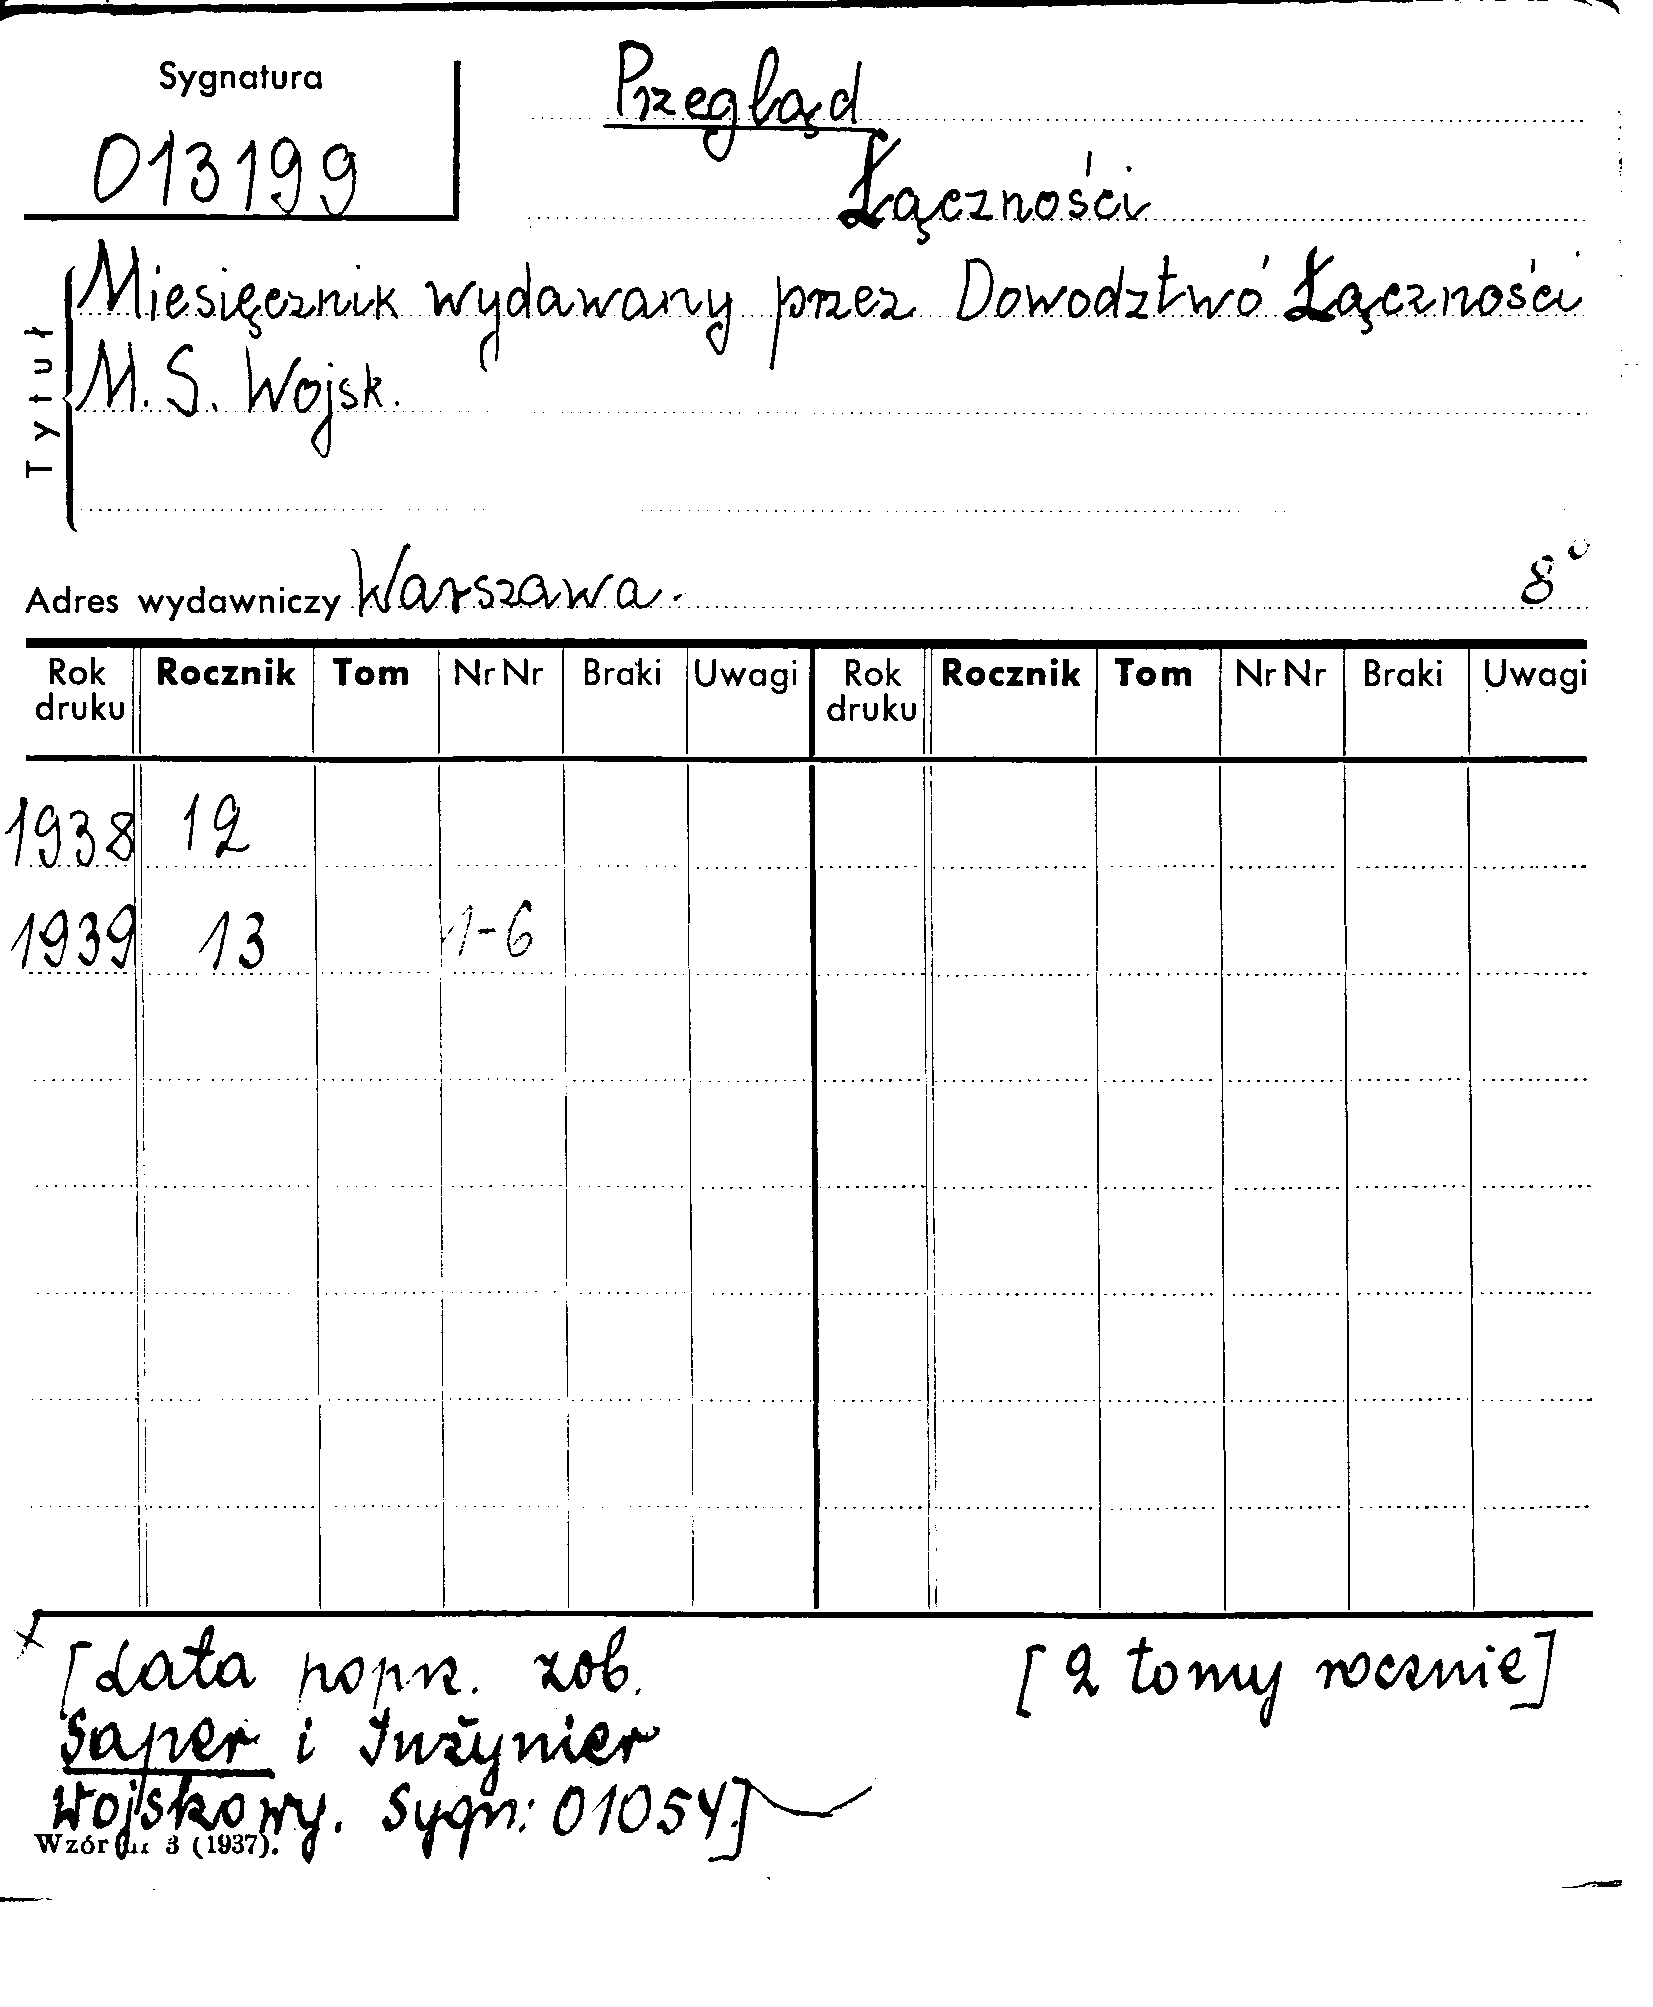 Sygnatura
013199
Przegląd
Łączności
Tytuł
Miesięcznik wydawany przez Dowodztwó Łączności
M. S. Wojsk.
Adres wydawniczy Warszawa. 8°
Rok druku Rocznik Tom Nr Nr Braki Uwagi Rok druku Rocznik Tom Nr Nr Braki Uwagi
1938 12
1939 13 1-6
x [Lata poprz. zob. [2 tomy rocznie]
Saper i Inżynier
Wojskowy. Sygn: 01054]
Wzór nr 3 (1937).